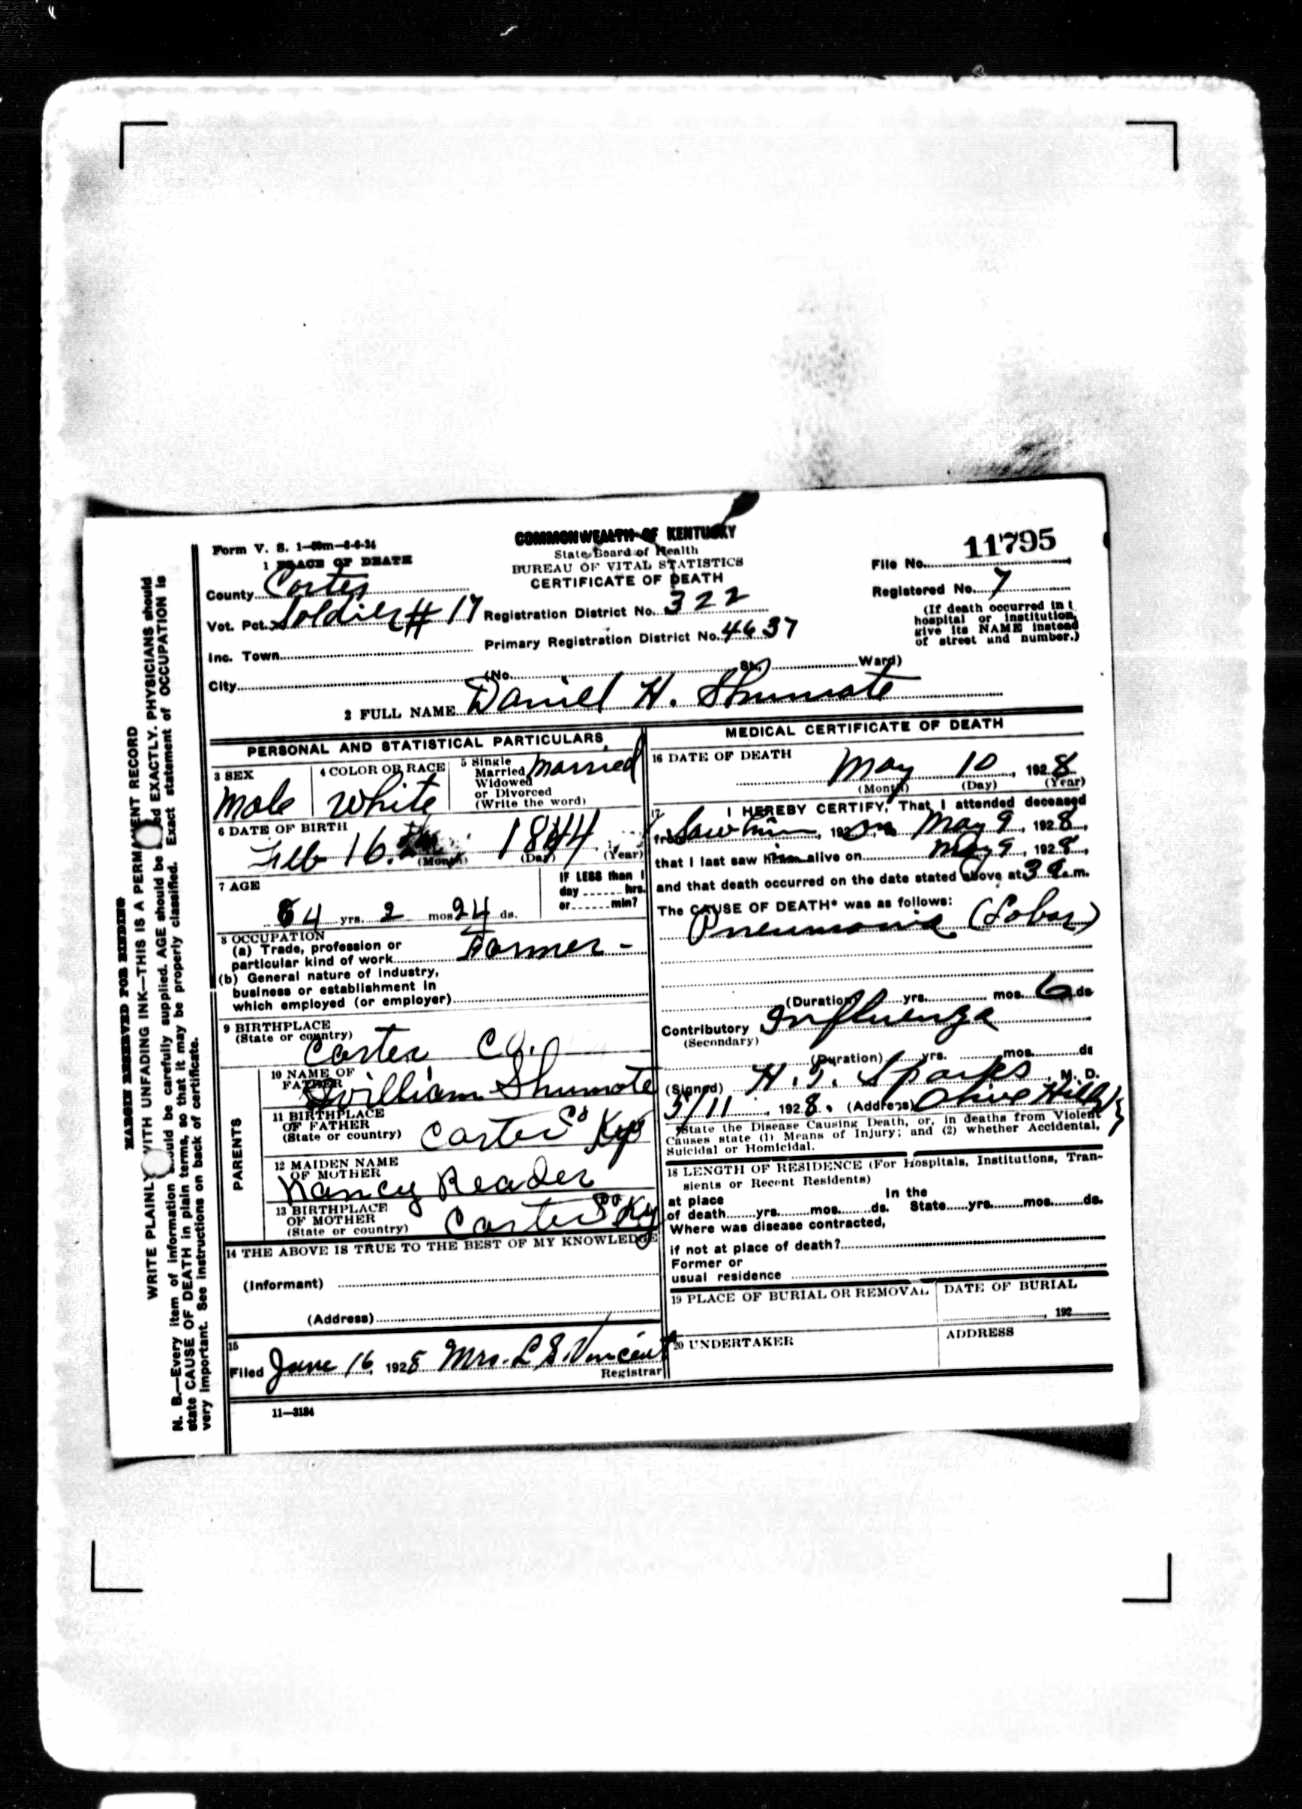 Form V. S. 1-50m-6-6-24
COMMONWEALTH OF KENTUCKY
State Board of Health
BUREAU OF VITAL STATISTICS
CERTIFICATE OF DEATH
File No. 11795
Registered No. 7
(If death occurred in a
hospital or institution,
give its NAME instead
of street and number.)
1 PLACE OF DEATH
County Carter
Vot. Pct. Soldier # 17
Registration District No. 322
Primary Registration District No. 4637
Inc. Town
City
(No. St. Ward)
2 FULL NAME Daniel H. Shumate
PERSONAL AND STATISTICAL PARTICULARS
3 SEX
Male
4 COLOR OR RACE
White
5 Single
Married
Widowed
or Divorced
(Write the word)
Married
6 DATE OF BIRTH
Feb 16 1844
(Month) (Day) (Year)
7 AGE
84 yrs. 2 mos 24 ds.
IF LESS than 1
day hrs.
or min?
8 OCCUPATION
(a) Trade, profession or
particular kind of work Farmer -
(b) General nature of industry,
business or establishment in
which employed (or employer)
9 BIRTHPLACE
(State or country)
Carter Co.
PARENTS
10 NAME OF
FATHER
William Shumate
11 BIRTHPLACE
OF FATHER
(State or country)
Carter Co Ky
12 MAIDEN NAME
OF MOTHER
Nancy Reader
13 BIRTHPLACE
OF MOTHER
(State or country)
Carter Co Ky
14 THE ABOVE IS TRUE TO THE BEST OF MY KNOWLEDGE
(Informant)
(Address)
15
Filed June 16, 1928 Mrs. L S. Vincent
Registrar
11-3184
MEDICAL CERTIFICATE OF DEATH
16 DATE OF DEATH
May 10, 1928
(Month) (Day) (Year)
17 I HEREBY CERTIFY, That I attended deceased
from Saw him, 192 on May 9, 1928,
that I last saw him alive on May 9, 1928,
and that death occurred on the date stated above at 3 a.m.
The CAUSE OF DEATH* was as follows:
Pneumonia (Lobar)
(Duration) yrs. mos. 6 ds
Contributory Influenza
(Secondary)
(Duration) yrs. mos. ds
(Signed) H. T. Sparks, M. D.
5/11, 1928. (Address) Olive Hill Ky
*State the Disease Causing Death, or, in deaths from Violent
Causes state (1) Means of Injury; and (2) whether Accidental,
Suicidal or Homicidal.
18 LENGTH OF RESIDENCE (For Hospitals, Institutions, Tran-
sients or Recent Residents)
at place In the
of death yrs. mos. ds. State yrs. mos. ds.
Where was disease contracted,
if not at place of death?
Former or
usual residence
19 PLACE OF BURIAL OR REMOVAL
DATE OF BURIAL
, 192
20 UNDERTAKER
ADDRESS
MARGIN RESERVED FOR BINDING
WRITE PLAINLY WITH UNFADING INK—THIS IS A PERMANENT RECORD
N. B.—Every item of information should be carefully supplied. AGE should be stated EXACTLY. PHYSICIANS should
state CAUSE OF DEATH in plain terms, so that it may be properly classified. Exact statement of OCCUPATION is
very important. See instructions on back of certificate.